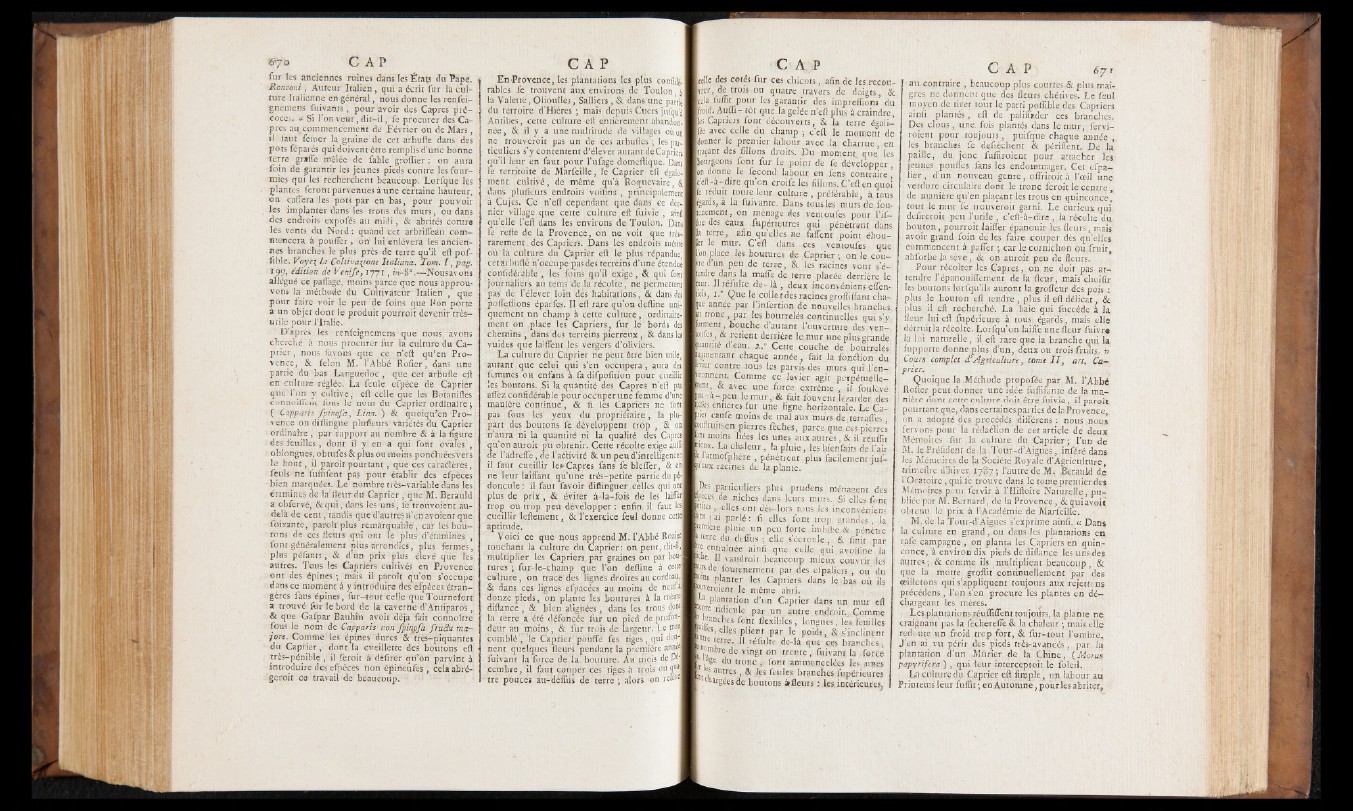 670 C A P
sur les anciennes ruines dans les États du Pape.
Ranconi, Auteur Italien, qui a écrit sur la cul-
ture Italienne en général, nous donne les rensei-
gnemens suivants, pour avoir des Capres pré-
coces. « Si l'on veut, dit-il, se procurer des Ca-
pres au commencement de Février ou de Mars,
il faut semer la graine de cet arbuste dans des
pots séparés qui doivent être remplis d'une bonne
terre grasse mêlée de sable grossier : on aura
soin de garantir les jeunes pieds contre les four-
mies qui les recherchent beaucoup. Lorsque les
plantes seront parvenues à une certaine hauteur,
on cassera les pots par en bas, pour pouvoir
les implanter dans les trous des murs, ou dans
des endroits exposés au midi, & abrités contre
les vents du Nord : quand cet arbrisseau com-
mencera à pousser, on lui enlévera les ancien-
nes branches le plus près de terre qu'il est pos-
sible. Voyez le Coltivazione Italiana. Tom. I, pag.
199, édition de Venise, 1771, in-8°.—Nous avons
allégué ce passage, moins parce que nous approu-
vons la méthode du Cultivateur Italien, que
pour faire voir le peu de soins que l'on porte
à un objet dont le produit pourroit devenir très-
utile pour l'Italie.
D'après les renseignemens que nous avons
cherché à nous procurer sur la culture du Ca-
prier, nous savons que ce n'est qu'en Pro-
vence, & selon M. l'Abbé Rosier, dans une
partie du bas Languedoc, que cet arbuste est
en culture réglée. La seule espèce de Caprier
que l'on y cultive, est celle que les Botanistes
connoissent sous le nom du Caprier ordinaire ;
( Capparis spinosa, Linn. ) & quoiqu'en Pro-
vence on distingue plusieurs variétés du Caprier
ordinaire, par rapport au nombre & à la figure
des feuilles, dont il y en a qui sont ovales,
oblongues, obtuses & plus ou moins ponctuées vers
le haut, il paroît pourtant, que ces caractères,
seuls ne suffisent pas pour établir des espèces
bien marquées. Le nombre très-variable dans les
étamines de la fleur du Caprier, que M. Berauld
a observé, & qui, dans les uns, se trouvoient au-
delà de cent, tandis que d'autres n'en avoient que
soixante, paroît plus remarquable, car les bou-
tons de ces fleurs qui ont le plus d'étamines,
sont généralement plus arrondies, plus fermes,
plus pésants, & d'un prix plus élevé que les
autres. Tous les Capriers cultivés en Provence
ont des épines ; mais il paroît qu'on s'occupe
dans ce moment à y introduire des espèces étran-
gères sans épines, sur-tout celle que Tournefort
a trouvé sur le bord de la caverne d'Antiparos,
& que Gaspar Bauhin avoit déja fait connoître
sous le nom de Capparis non spinosa fructu ma-
jore. Comme les épines dures & très-piquantes
du Caprier, dont la cueillette des boutons est
très-pénible, il seroit à désirer qu'on parvint à
introduire des espèces non épineuses, cela abré-
geroit ce travail de beaucoup.
C A P
En Provence, les plantations les plus considé-
rables se trouvent aux environs de Toulon, à
la Valette, Olioulles, Salliers, & dans une partie
du terroire d'Hières ; mais depuis Cuers jusqu'à
Antibes, cette culture est entièrement abandon-
née, & il y a une multitude de villages où on
ne trouveroit pas un de ces arbustes ; les par-
ticuliers s'y contentent d'élever autant de Capriers
qu'il leur en faut pour l'usage domestique. Dans
le territoire de Marseille, le Caprier est égale-
ment cultivé, de même qu'à Roquevaire, &
dans plusieurs endroits voisins, principalement
à Cujes. Ce n'est cependant que dans ce der-
nier village que cette culture est suivie, ainsi
qu'elle l'est dans les environs de Toulon. Dans
le reste de la Provence, on ne voit que très-
rarement des Capriers. Dans les endroits même
où la culture du Caprier est le plus répandue,
cet arbuste n'occupe pas des terreins d'une étendue
considérable, les soins qu'il exige, & qui sont
journaliers au tems de la récolte, ne permettent
pas de l'élever loin des habitations, & dans des
possessions éparses. Il est rare qu'on destine uni-
quement un champ à cette culture, ordinaire-
ment on place les Capriers, sur le bords des
chemins, dans des terreins pierreux, & dans les
vuides que laissent les vergers d'oliviers.
La culture du Caprier ne peut être bien utile,
autant que celui qui s'en occupera, aura des
femmes ou enfans à sa disposition pour cueillir
les boutons. Si la quantité des Capres n'est pas
assez considérable pour occuper une femme d'une
manière continue, & si les Capriers ne sont
pas sous les yeux du propriétaire, la plu-
part des boutons se développent trop, & on
n'aura ni la quantité ni la qualité des Capres
qu'on auroit pu obtenir. Cette récolte exige aussi
de l'adresse, de l'activité & un peu d'intelligence :
il faut cueillir les Capres sans se blesser, & en
ne leur laissant qu'une très-petite partie du pé-
doncule : il faut savoir distinguer celles qui ont
plus de prix, & éviter à-la-fois de les laisser
trop ou trop peu développer : enfin il faut les
cueillir lestement, & l'exercice seul donne cette
aptitude.
Voici ce que nous apprend M. l'Abbé Rosier
touchant la culture du Caprier : on peut, dit-il,
multiplier les Capriers par graines ou par bou-
tures ; sur-le-champ que l'on destine à cette
culture, on trace des lignes droites au cordeau,
& dans ces lignes espacées au moins de neuf à
douze pieds, on plante les boutures à la même
distance, & bien alignées, dans les trous dont
la terre a été défoncée sur un pied de profon-
deur au moins, & sur trois de largeur. Le trou
comblé, le Caprier pousse ses tiges, qui don-
nent quelques fleurs pendant la première année,
suivant la force de la bouture. Au mois de Dé-
cembre, il faut couper ces tiges à trois ou qua-
tre pouces au-dessus de terre ; alors on relève
C A P
celle des cotés sur ces chicots, afin de les recou-
vrir, de trois ou quatre travers de doigts, &
cela suffit pour les garantir des impressions du
froid. Aussi-tôt que la gelée n'est plus à craindre,
les Capriers sont découverts, & la terre égali-
sée avec celle du champ ; c'est le moment de
donner le premier labour avec la charrue, en
traçant des sillons droits. Du moment que les
bourgeons sont sur le point de se développer,
on donne le second labour en sens contraire,
c'est-à-dire qu'on croise les sillons. C'est en quoi
se réduit toute leur culture, préférable, à tous
égards, à la suivante. Dans tous les murs de sou-
tenement, on ménage des ventouses pour l'is-
sue des eaux supérieures qui pénétrant dans
la terre, afin qu'elles ne fassent point ébou-
ler le mur. C'est dans ces ventouses que
l'on place les boutures de Caprier ; on le cou-
vre d'un peu de terre, & les racines vont s'é-
tendre dans la masse de terre placée derrière le
mur. Il résulte de-là, deux inconvéniens essen-
tiels, 1.° Que le collet des racines grossissant cha-
que année par l'insertion de nouvelles branches
au tronc, par les bourrelés continuelles qui s'y
forment, bouche d'autant l'ouverture des ven-
touses, & retient derrière le mur une plus grande
quantité d'eau. 2.° Cette couche de bourrelés
augmentant chaque année, fait la fonction du
levier contre tous les parois des murs qui l'en-
vironnent. Comme ce levier agit perpétuelle-
ment, & avec une force extrême, il soulève
peu-à-peu le mur, & fait souvent lézarder des
toises entières sur une ligne horizontale. Le Ca-
prier cause moins de mal aux murs de terrasses,
construits en pierres séches, parce que ces pierres
sont moins liées les unes aux autres, & il réussit
mieux. La chaleur, la pluie, les bienfaits de l'air
de l'atmosphère, pénétrent plus facilement jus-
qu'aux racines de la plante.
Des particuliers plus prudens ménagent des
espèces de niches dans leurs murs. Si elles sont
petites, elles ont dès-lors tous les inconvéniens
dont j'ai parlé : si elles sont trop grandes, la
première pluie un peu forte imbibe & pénètre
la terre du dessus ; elle s'écroule, & finit par
être entraînée ainsi que celle qui avoisine la
niche. Il vaudroit beaucoup mieux couvrir les
murs de soutenement par des espaliers, ou du
moins planter les Capriers dans le bas où ils
couvriroient le même abri.
La plantation d'un Caprier dans un mur est
encore ridicule par un autre endroit. Comme
ses branches sont flexibles, longues, les feuilles
épaisses, elles plient par le poids, & s'inclinent
contre terre. Il résulte de-là que ces branches,
au nombre de vingt ou trente, suivant la force
& l'âge du tronc, sont ammoncelées les unes
sur les autres, & les seules branches supérieures
sont chargées de boutons à fleurs : les intérieures,
C A P 671
au contraire, beaucoup plus courtes & plus mai-
gres ne donnent que des fleurs chétives. Le seul
moyen de tirer tout le parti possible des Capriers
ainsi plantés, est de palissader ces branches.
Des clous, une fois plantés dans le mur, servi-
roient pour toujours, puisque chaque année,
les branches se desséchent & périssent. De la
paille, du jonc suffiroient pour attacher les
jeunes pousses sans les endommager. Cet espa-
lier, d'un nouveau genre, offriroit à l'œil une
verdure circulaire dont le tronc seroit le centre,
de manière qu'en plaçant les trous en quinconce,
tout le mur se trouveroit garni. Le curieux qui
désireroit peu l'utile, c'est-à-dire, la récolte du
bouton, pourroit laisser épanouir les fleurs, mais
avoir grand soin de les faire couper dès qu'elles
commencent à passer ; car le cornichon ou fruit,
absorbe la seve, & on auroit peu de fleurs.
Pour récolter les Capres, on ne doit pas at-
tendre l'épanouissement de la fleur, mais choisir
les boutons lorsqu'ils auront la grosseur des pois :
plus le bouton est tendre, plus il est délicat, &
plus il est recherché. La baie qui succède à la
fleur lui est supérieure à tous égards, mais elle
détruit la récolte. Lorsqu'on laisse une fleur suivre
la loi naturelle, il est rare que la branche qui la
supporte donne plus d'un, deux ou trois fruits. »
Cours complet d'Agriculture, tome II, art. Ca-
prier.
Quoique la Méthode proposée par M. l'Abbé
Rosier peut donner une idée suffisante de la ma-
nière dont cette culture doit être suivie, il paroît
pourtant que, dans certaines parties de la Provence,
on a adopté des procédés différens : nous nous
servons pour la rédaction de cet article de deux
Mémoires sur la culture du Caprier ; l'un de
M. le Président de la Tour-d'Aigues, inséré dans
les Mémoires de la Société Royale d'Agriculture,
trimestre d'hiver 1787 ; l'autre de M. Berauld de
l'Oratoire, qui se trouve dans le tome premier des
Mémoires pour servir à l'Histoire Naturelle, pu-
bliée par M. Bernard, de la Provence, & qui avoit
obtenu le prix à l'Académie de Marseille.
M. de la Tour-d'Aigues s'exprime ainsi. « Dans
la culture en grand, ou dans les plantations en
rase campagne, on planta les Capriers en quin-
conce, à environ dix pieds de distance les uns des
autres ; & comme ils multiplient beaucoup, &
que la motte grossit continuellement par des
œilletons qui s'appliquent toujours aux rejettons
précédens, l'on s'en procure les plantes en dé-
chargeant les meres.
Les plantations réussissent toujours, la plante ne
craignant pas la sécheresse & la chaleur ; mais elle
redoute un froid trop fort, & sur-tout l'ombre.
J'en ai vu périr des pieds très-avancés, par la
plantation d'un Mûrier de la Chine, ( Morus
papyrifera ), qui leur interceptoit le soleil.
La culture du Caprier est simple, un labour au
Printems leur suffit ; en Automne, pour les abriter,